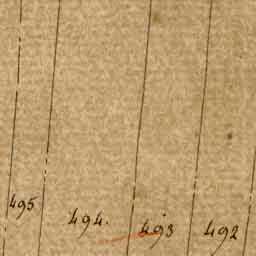 495 494. 493 492